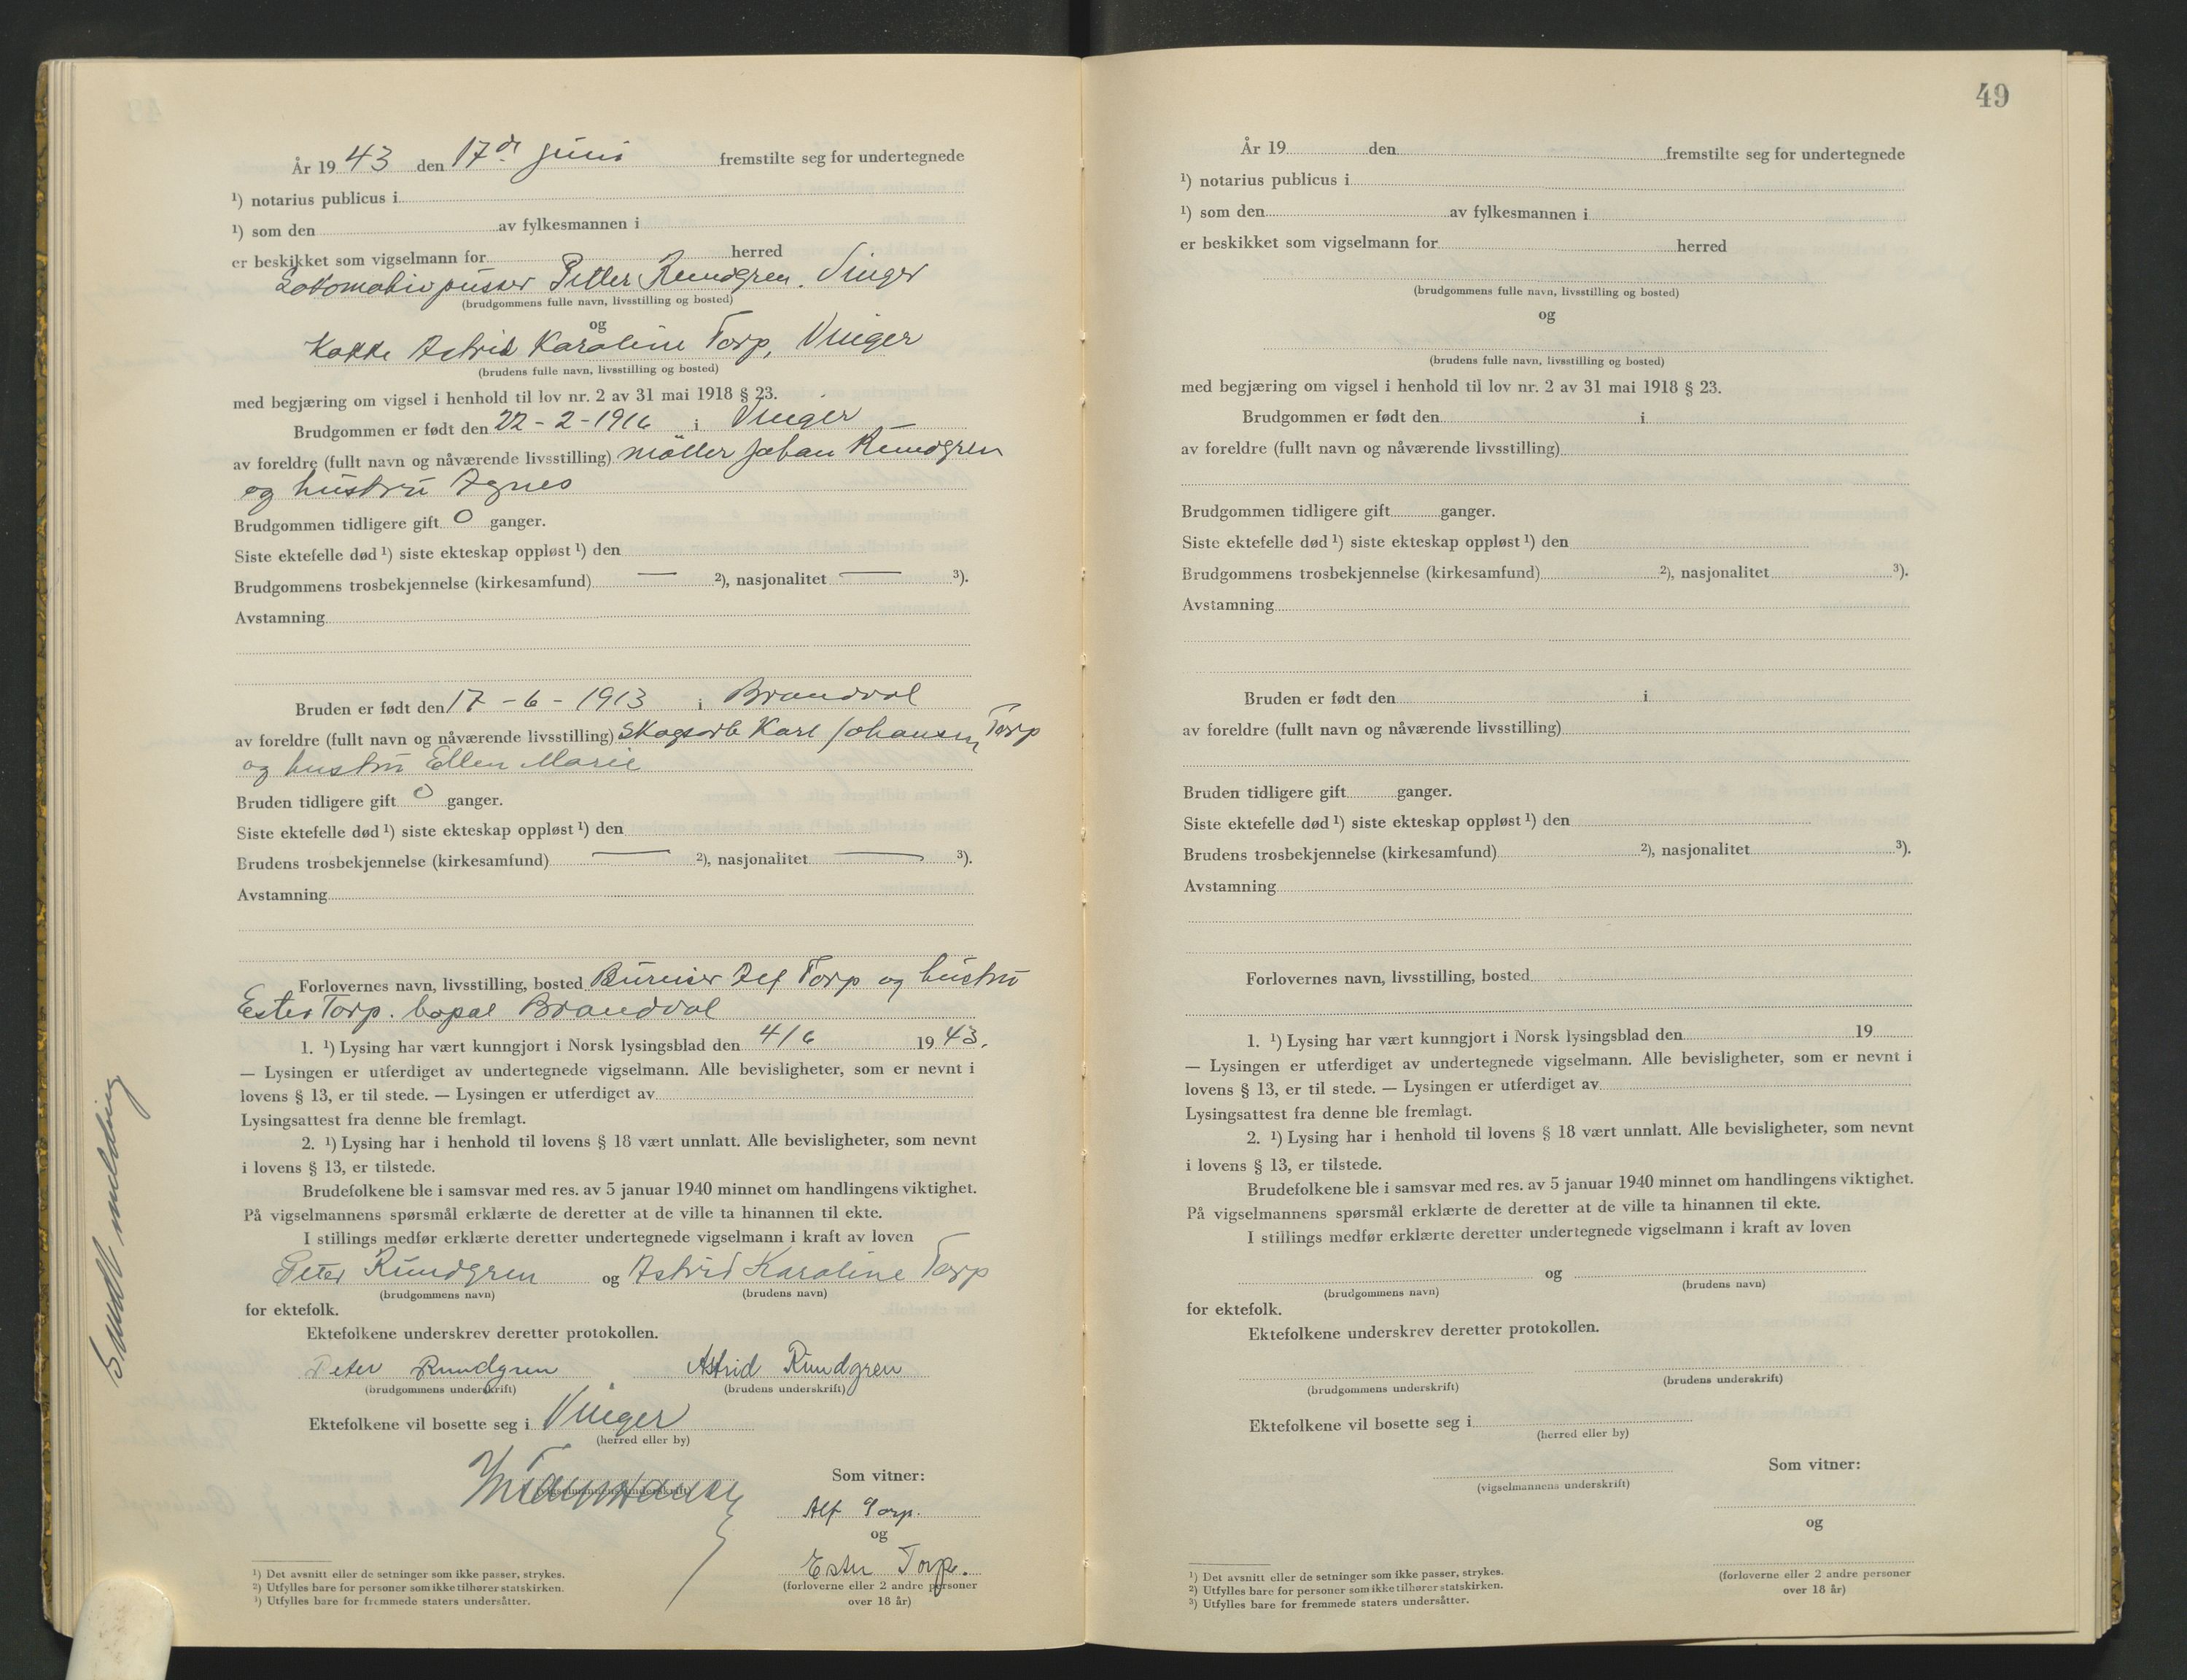 År 1943 den 17de juni fremstilte seg for undertegnede
¹) notarius publicus i
¹) som den av fylkesmannen i
er beskikket som vigselmann for herred
Lokomotivpusser Petter Rundgren. Vinger
(brudgommens fulle navn, livsstilling og bosted)
og
Kokke Astrid Karoline Torp, Vinger
(brudens fulle navn, livsstilling og bosted)
med begjæring om vigsel i henhold til lov nr. 2 av 31 mai 1918 § 23.
Brudgommen er født den 22-2-1916 i Vinger
av foreldre (fullt navn og nåværende livsstilling) möller Johan Rundgren
og hustru Agnes
Brudgommen tidligere gift 0 ganger.
Siste ektefelle død ¹) siste ekteskap oppløst ¹) den
Brudgommens trosbekjennelse (kirkesamfund) — ²), nasjonalitet — ³).
Avstamning
Bruden er født den 17-6-1913 i Brandval
av foreldre (fullt navn og nåværende livsstilling) Skogsarb Karl Johansen Torp
og hustru Ellen Marie
Bruden tidligere gift 0 ganger.
Siste ektefelle død ¹) siste ekteskap oppløst ¹) den
Brudens trosbekjennelse (kirkesamfund) — ²), nasjonalitet — ³).
Avstamning
Forlovernes navn, livsstilling, bosted Bureiser Alf Torp og hustru
Ester Torp. bopæl Brandval
1. ¹) Lysing har vært kunngjort i Norsk lysingsblad den 4/6 1943.
— Lysingen er utferdiget av undertegnede vigselmann. Alle bevisligheter, som er nevnt i
lovens § 13, er til stede. — Lysingen er utferdiget av
Lysingsattest fra denne ble fremlagt.
2. ¹) Lysing har i henhold til lovens § 18 vært unnlatt. Alle bevisligheter, som nevnt
i lovens § 13, er tilstede.
Brudefolkene ble i samsvar med res. av 5 januar 1940 minnet om handlingens viktighet.
På vigselmannens spørsmål erklærte de deretter at de ville ta hinannen til ekte.
I stillings medfør erklærte deretter undertegnede vigselmann i kraft av loven
Peter Rundgren og Astrid Karoline Torp
(brudgommens navn) (brudens navn)
for ektefolk.
Ektefolkene underskrev deretter protokollen.
Peter Rundgren Astrid Rundgren
(brudgommens underskrift) (brudens underskrift)
Ektefolkene vil bosette seg i Vinger
(herred eller by)
(vigselmannens underskrift)
Som vitner:
Alf Torp.
og
Ester Torp.
(forloverne eller 2 andre personer
over 18 år)
¹) Det avsnitt eller de setninger som ikke passer, strykes.
²) Utfylles bare for personer som ikke tilhører statskirken.
³) Utfylles bare for fremmede staters undersåtter.
Sendt melding
49
År 19 den fremstilte seg for undertegnede
¹) notarius publicus i
¹) som den av fylkesmannen i
er beskikket som vigselmann for herred
(brudgommens fulle navn, livsstilling og bosted)
og
(brudens fulle navn, livsstilling og bosted)
med begjæring om vigsel i henhold til lov nr. 2 av 31 mai 1918 § 23.
Brudgommen er født den i
av foreldre (fullt navn og nåværende livsstilling)
Brudgommen tidligere gift ganger.
Siste ektefelle død ¹) siste ekteskap oppløst ¹) den
Brudgommens trosbekjennelse (kirkesamfund) ²), nasjonalitet ³).
Avstamning
Bruden er født den i
av foreldre (fullt navn og nåværende livsstilling)
Bruden tidligere gift ganger.
Siste ektefelle død ¹) siste ekteskap oppløst ¹) den
Brudens trosbekjennelse (kirkesamfund) ²), nasjonalitet ³).
Avstamning
Forlovernes navn, livsstilling, bosted
1. ¹) Lysing har vært kunngjort i Norsk lysingsblad den 19
— Lysingen er utferdiget av undertegnede vigselmann. Alle bevisligheter, som er nevnt i
lovens § 13, er til stede. — Lysingen er utferdiget av
Lysingsattest fra denne ble fremlagt.
2. ¹) Lysing har i henhold til lovens § 18 vært unnlatt. Alle bevisligheter, som nevnt
i lovens § 13, er tilstede.
Brudefolkene ble i samsvar med res. av 5 januar 1940 minnet om handlingens viktighet.
På vigselmannens spørsmål erklærte de deretter at de ville ta hinannen til ekte.
I stillings medfør erklærte deretter undertegnede vigselmann i kraft av loven
og
(brudgommens navn) (brudens navn)
for ektefolk.
Ektefolkene underskrev deretter protokollen.
(brudgommens underskrift) (brudens underskrift)
Ektefolkene vil bosette seg i
(herred eller by)
(vigselmannens underskrift)
Som vitner:
og
(forloverne eller 2 andre personer
over 18 år)
¹) Det avsnitt eller de setninger som ikke passer, strykes.
²) Utfylles bare for personer som ikke tilhører statskirken.
³) Utfylles bare for fremmede staters undersåtter.